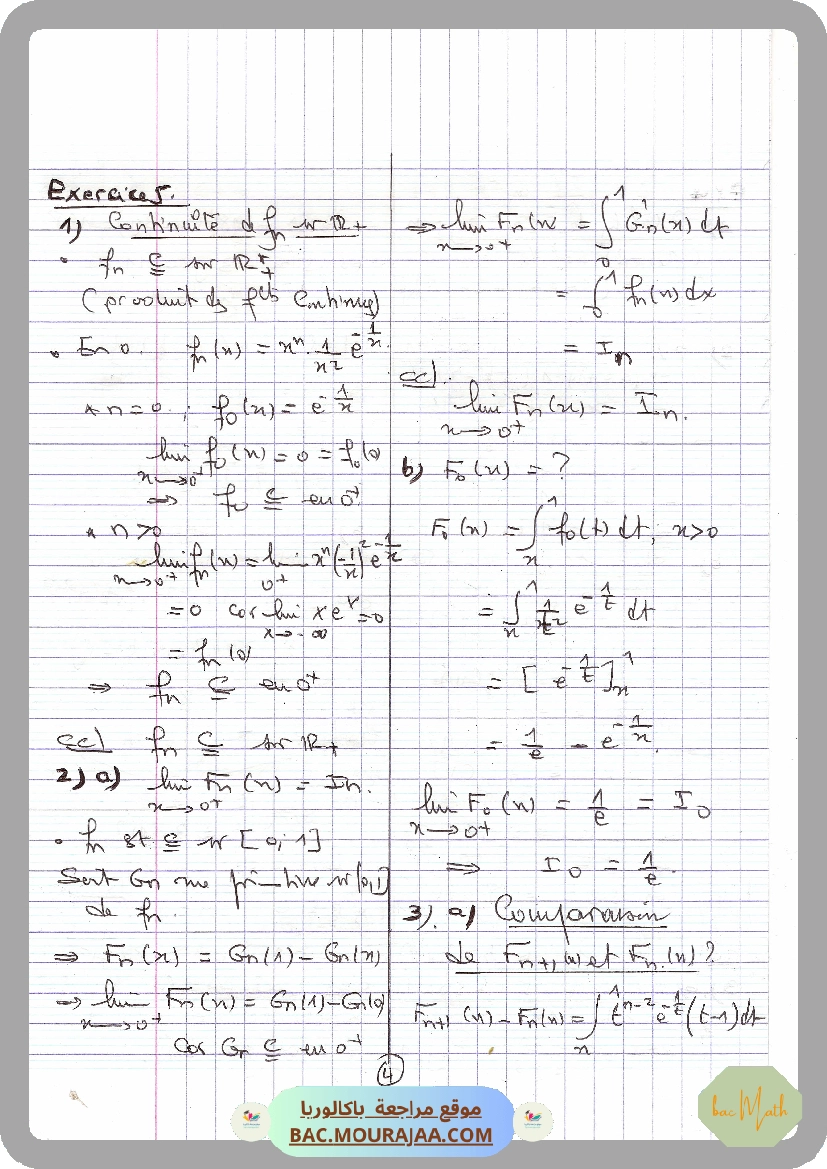 Exercice 5.
1) Continuité d fn sr IR+
• fn C sur IR*+
(produit ds fcts Continues)
• En 0. fn(x) = xⁿ · 1/x² e^(-1/x)
* n=0 ; f0(x) = e^(-1/x)
lim f0(x) = 0 = f0(0)
x→0+
⇒ f0 C en 0+
* n>0
lim fn(x) = lim xⁿ(-1/x)² e^(-1/x)
x→0+ 0+
= 0 car lim x eˣ = 0
x→-∞
= fn(0)
⇒ fn C en 0+
ccl fn C sur IR+
2) a) lim Fn(x) = In.
x→0+
• fn est C sr [0; 1]
Soit Gn une primitive sr [0,1]
de fn.
⇒ Fn(x) = Gn(1) - Gn(x)
⇒ lim Fn(x) = Gn(1) - Gn(0)
x→0+
Car Gn C en 0+
⇒ lim Fn(x = ∫₀¹ G'n(x) dt
x→0+
= ∫₀¹ fn(x) dx
= In
ccl.
lim Fn(x) = In.
x→0+
b) F0(x) = ?
F0(x) = ∫ₓ¹ f0(t) dt, x>0
= ∫ₓ¹ 1/t² e^(-1/t) dt
= [e^(-1/t)]ₓ¹
= 1/e - e^(-1/x).
lim F0(x) = 1/e = I0
x→0+
⇒ I0 = 1/e.
3). a) Comparaison
de Fn+1(x) et Fn(x) ?
Fn+1(x) - Fn(x) = ∫ₓ¹ tⁿ⁻² e^(-1/t) (t-1) dt
4
موقع مراجعة باكالوريا
BAC.MOURAJAA.COM
bac Math